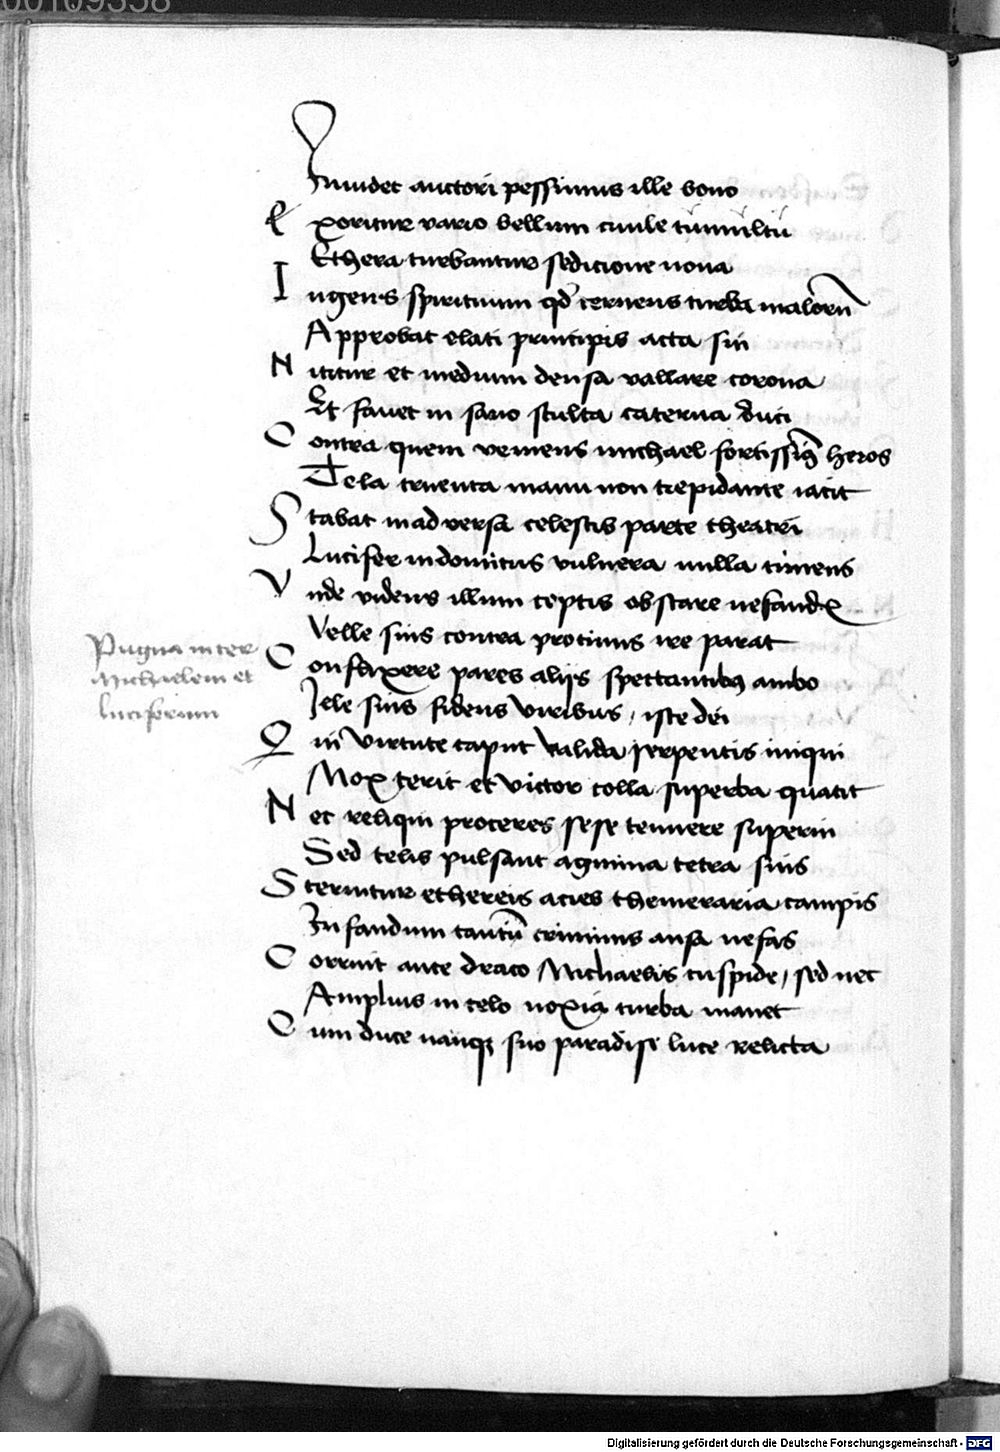 00109358
Inuidet auctori pessimus ille bono
Exoritur vario bellum ciuile tūmultū
Ethera turbantur sedicione noua
Ingens spirituum qd cernens turba malorū
Approbat elati principis acta sui
Nititur et medium densa vallare corona
Et fauet in sano stulta caterua duci
Contra quem veniens michael fortissimꝰ heros
Tela cruenta manu non trepidante iacit
Stabat in adversa celestis parte theatri
Lucifer indomitus vulnera nulla timens
Vnde videns illum ceptis obstare nefandꝭ
Velle suis contra protinus ire parat
Pugna inter
Michaelem et
luciferum
Conflixere pares alijs spectantibꝰ ambo
Ille suis fidens viribus / iste dei
Qui virtute caput valida serpentis iniqui
Mox terit et victor colla superba quatit
Nec reliqui proceres sese tenuere superni
Sed telis pulsant agmina tetra suis
Sternitur ethereis acies themeraria campis
Infandum tantū criminis ausa nefas
Corruit ante draco Michaelis cuspide / sed nec
Amplius in celo noxia turba manet
Cum duce nanqꝫ suo paradisi luce relicta
Digitalisierung gefördert durch die Deutsche Forschungsgemeinschaft - DFG